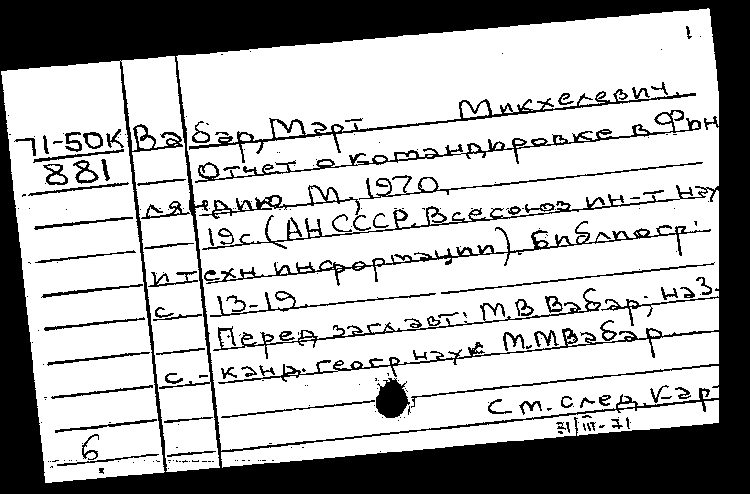 1
71-50К Вабар, Март Микхелевич.
881 Отчет о командировке в Фин
ляндию. М., 1970.
19с. (АН СССР. Всесоюз ин-т нау
и техн. информации). Библиогр:
с. 13-19.
Перед загл. авт: М.В Вабар; наз.
с. - канд. геогр. наук М.М Вабар
См. след. кар
31/III-71
6